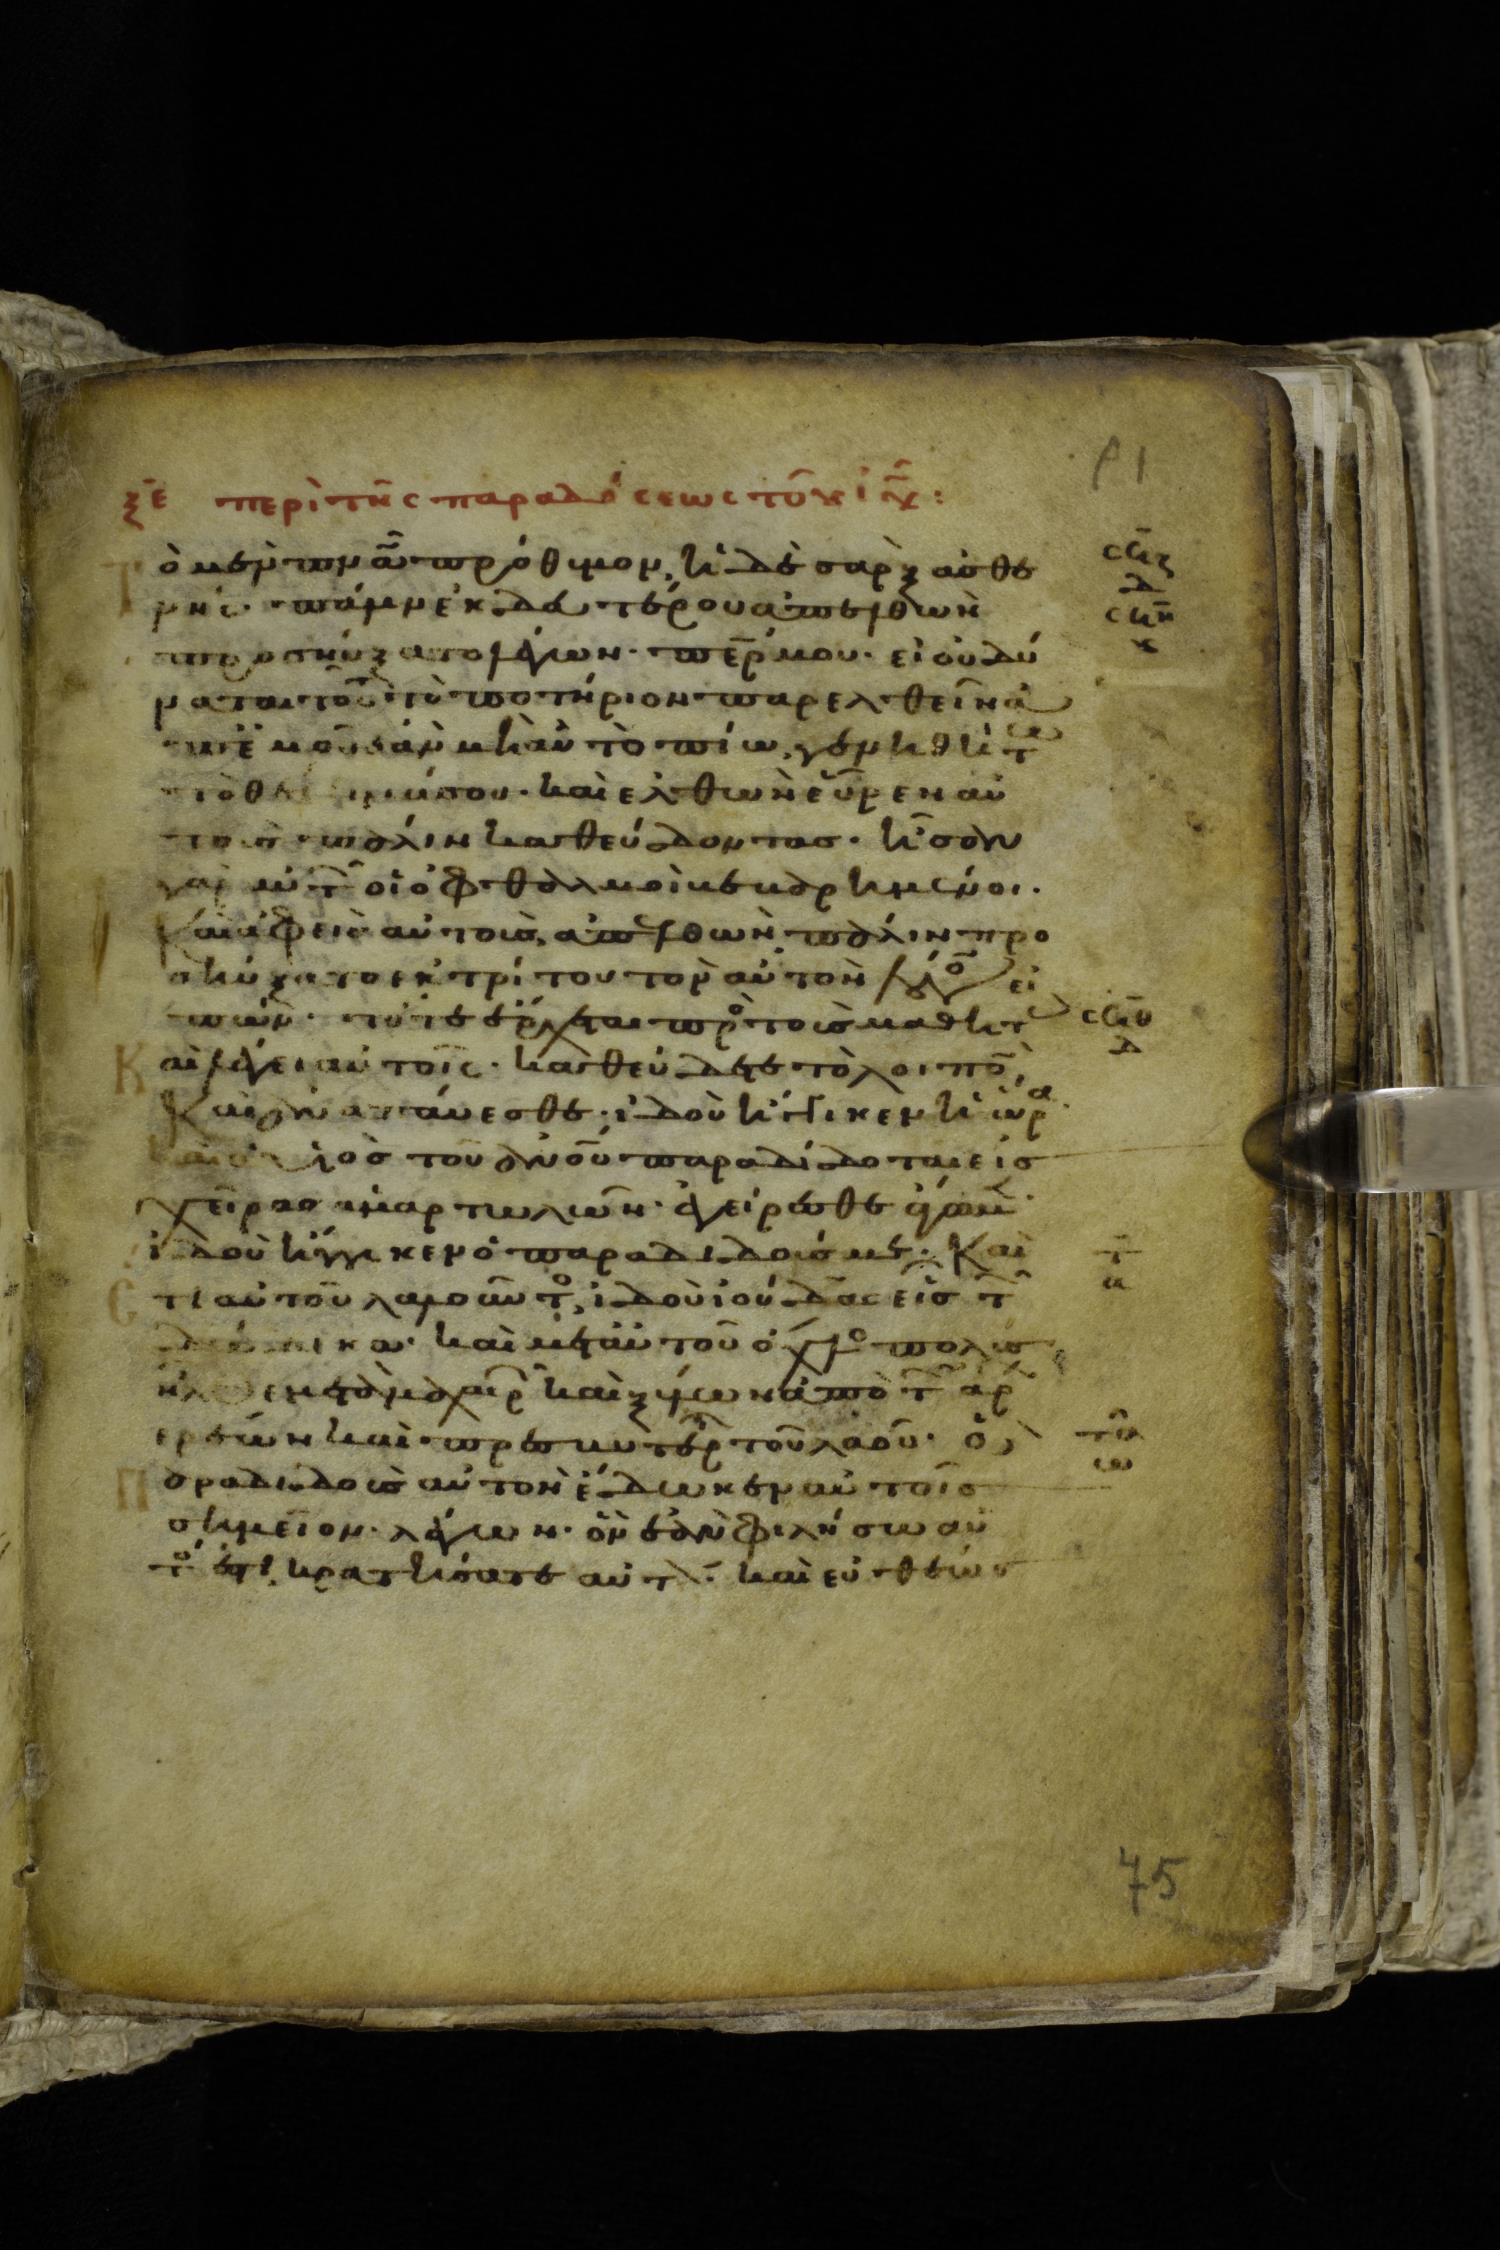 ξε περὶ τῆς παραδόσεως τοῦ κυ ἰυ χυ:
Τὸ μὲν πνα πρόθυμον, ἡ δὲ σὰρξ ἀσθε σϟζ δ
νής· πάλιν ἐκ δευτέρου ἀπελθὼν σϟη
προσηύξατο λέγων· περ μου· εἰ οὐ δύ
ναται τοῦτο τὸ ποτήριον παρελθεῖν ἀ
π' ἐμοῦ ἐὰν μὴ αὐτὸ πίω, γενηθήτω
τὸ θέλημά σου· καὶ ἐλθὼν εὗρεν αὐ
τοὺς πάλιν καθεύδοντας· ἦσαν
γὰρ αὐτῶν οἱ ὀφθαλμοὶ βεβαρημένοι·
Καὶ ἀφεὶς αὐτοὺς, ἀπελθὼν πάλιν προ
σηύξατο ἐκ τρίτου τὸν αὐτὸν λόγον εἰ
πών· τότε ἔρχεται πρὸς τοὺς μαθητ σϟθ δ
Καὶ λέγει αὐτοῖς· καθεύδετε τὸ λοιπὸν
Καὶ ἀναπαύεσθε· ἰδοὺ ἤγγικεν ἡ ὥρα
καὶ ὁ υἱὸς τοῦ ἀνου παραδίδοται εἰς
χεῖρας ἁμαρτωλῶν· ἐγείρεσθε ἄγωμεν·
ἰδοὺ ἤγγικεν ὁ παραδιδούς με· Καὶ τ α
Ἔτι αὐτοῦ λαλοῦντος, ἰδοὺ ἰούδας εἷς τῶν
δώδεκα· καὶ μετ' αὐτοῦ ὄχλος πολὺς
ἦλθεν μετὰ μαχαιρ καὶ ξύλων ἀπὸ τῶν ἀρχ
ερέων καὶ πρεσβυτέρ τοῦ λαοῦ· ὁ
Παραδιδοὺς αὐτὸν ἔδωκεν αὐτοῖς
σημεῖον· λέγων· ὃν ἐὰν φιλήσω αὐ
τός ἐστι, κρατήσατε αὐτόν· καὶ εὐθέως
75